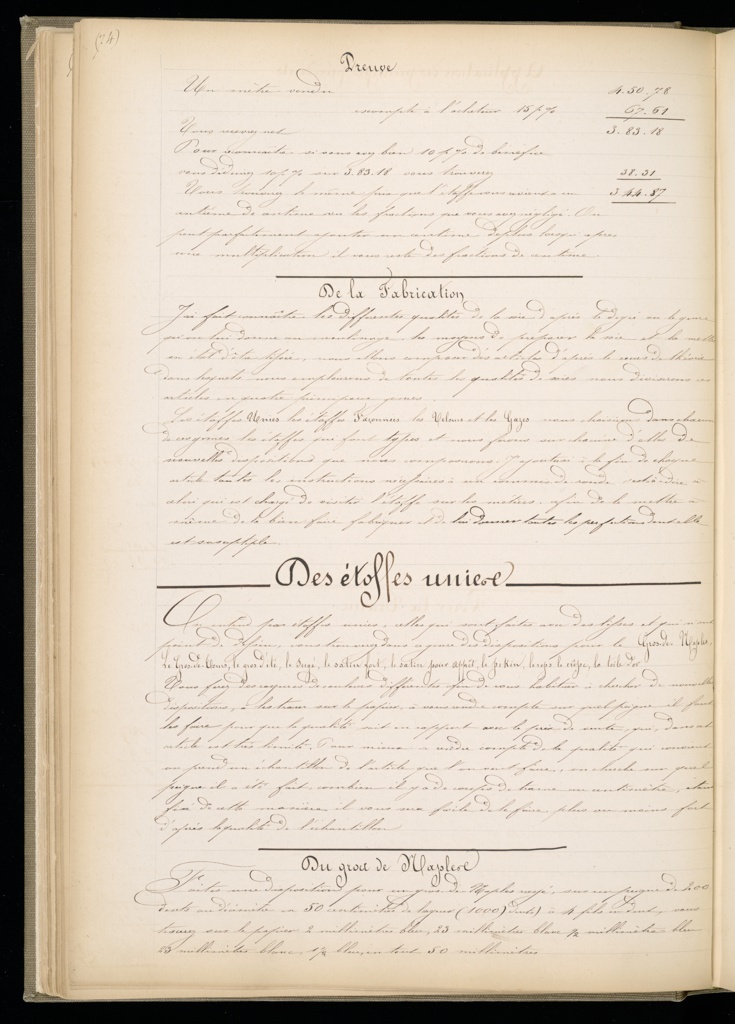 (74)
Preuve
Un mètre vendu 4.50.78
escompte à l'acheteur 15 p % 67.61
Vous recevez net 3.83.18
Pour connaître si vous avez bien 10 p % de bénéfice
vous déduisez 10 p % sur 3.83.18 vous trouverez 38.31
Vous trouverez le même prix que l'étoffe vous revient à un 3.44.87
centième de centime vu les fractions que vous avez négligé. On
peut parfaitement ajouter un centime de plus lorsque après
une multiplication il vous reste des fractions de centime
De la Fabrication
J'ai fait connaître les différentes qualités de la soie d'après le degré ou le genre
qu'on lui donne au moulinage les moyens de préparer la soie et la mettre
en état d'être tissée, nous allons composer des articles d'après le cours de théorie
dans lesquels nous emploierons de toutes les qualités de soies nous diviserons ces
articles en quatre principaux genres
Les étoffes Unies les étoffes Façonnées les Velours et les Gazes nous choisirons dans chacun
de ces genres les étoffes que font types et nous ferons sur chacune d'elles de
nouvelles dispositions que nous composerons. J'ajouterai à la fin de chaque
article toutes les instructions nécessaires à un commis de ronde c'est à dire à
celui qui est chargé de visiter l'étoffe sur les métiers. afin de le mettre à
même de la bien faire fabriquer et de lui donner toutes les perfections dont elle
est susceptible
Des étoffes unies
On entend par étoffes unies, celles qui sont faites avec des lisses et qui n'ont
point de dessin, vous trouverez dans ce genre des dispositions pour le Gros-de-Naples,
Le Gros-de-Tours, le gros d'été, le Sergé, le satin fort, le satin pour apprêt, le pékin, le reps le crêpe, la toile d'or
Vous ferez des rayures de couleurs différentes afin de vous habituer à chercher de nouvelles
dispositions, à les tracer sur le papier, à vous rendre compte sur quel peigne il faut
les faire pour que la qualité soit en rapport avec le prix de vente, qui, dans cet
article est très limité. Pour mieux se rendre compte de la qualité qui convient
on prend un échantillon de l'article que l'on veut faire, on cherche sur quel
peigne il a été fait, combien il y a de coups de trame au centimètre, étant
fixé de cette manière il vous sera facile de le faire plus ou moins fort
d'après la qualité de l'échantillon
Du gros de Naples
Faites une disposition pour un gros de Naples rayé, sur un peigne de 200
dents au décimètre en 50 centimètres de largeur (1000) dents à 4 fils en dent, vous
tracerez sur le papier 2 millimètres bleu, 23 millimètres blanc ½ millimètre bleu
23 millimètres blanc, 1½ bleu, en tout 50 millimètres